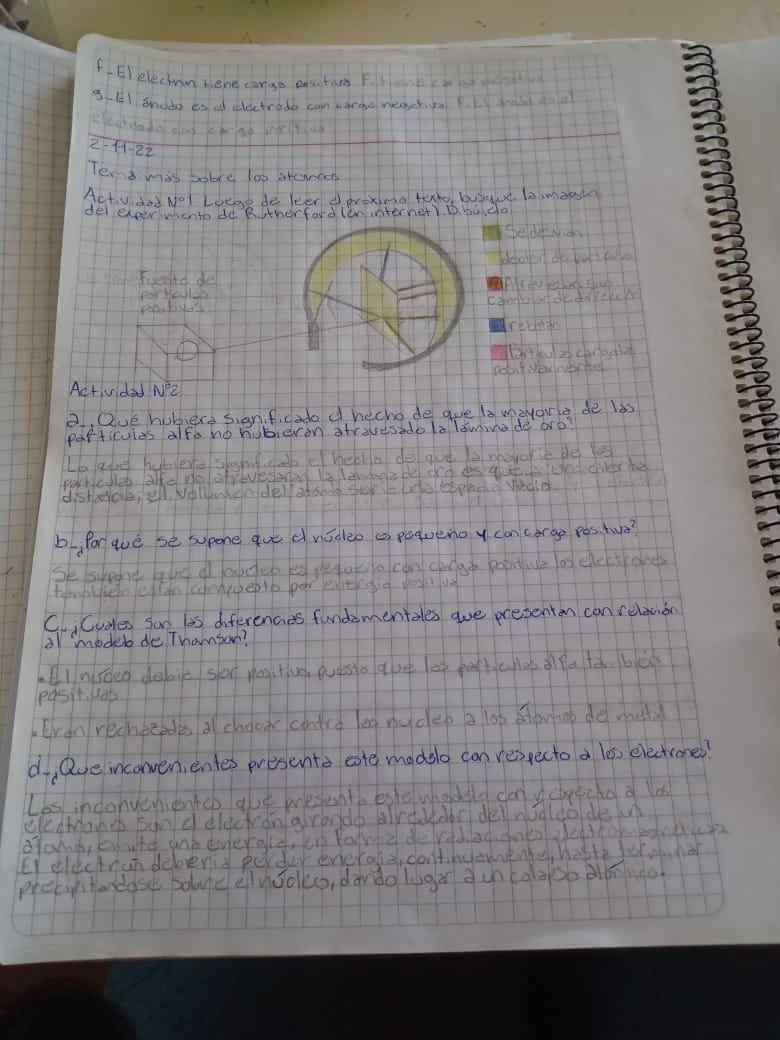 f- El electron tiene carga positiva F. tiene carga negativa
g- El ánodo es el electrodo con carga negativa F. El ánodo es el
electrodo con carga positiva
2-11-22
Tema más sobre los atomos
Actividad Nº1 Luego de leer el próximo texto, busque la imagen
del experimento de Rutherford (en internet). Dibujelo.
Se desvian
Fuente de
particulas
positivas
detector de particulas
Atraviesan sin
cambiar de dirección
rebotan
Particulas cargadas
positivamente
Actividad Nº2
a-¿Qué hubiera significado el hecho de que la mayoria de las
particulas alfa no hubieran atravesado la lámina de oro?
Lo que hubiera significado el hecho de que la mayoria de las
particulas alfa no atravesaran la lamina de oro es que a una cierta
distancia, el volumen del atomo seria de espacio vacio
b-¿Por qué se supone que el núcleo es pequeño y con carga positiva?
Se supone que el nucleo es pequeño con carga positiva los electrones
tambien estan compuesto por energia positiva
C-¿Cuales son las diferencias fundamentales que presentan con relación
al modelo de Thomson?
•El núcleo debia ser positivo, puesto que las particulas alfa también
positivas
•Eran rechazadas al chocar contra los nucleo a los átomos de metal
d-¿Que inconvenientes presenta este modelo con respecto a los electrones?
Los inconvenientes que presenta este modelo con respecto a los
electrones son el electrón girando alrededor del núcleo de un
átomo, emite una energia, en forma de radiaciones electromagnética
El electrón deberia perder energia, continuamente, hasta terminar
precipitandose sobre el núcleo, dando lugar a un colapso atómico.